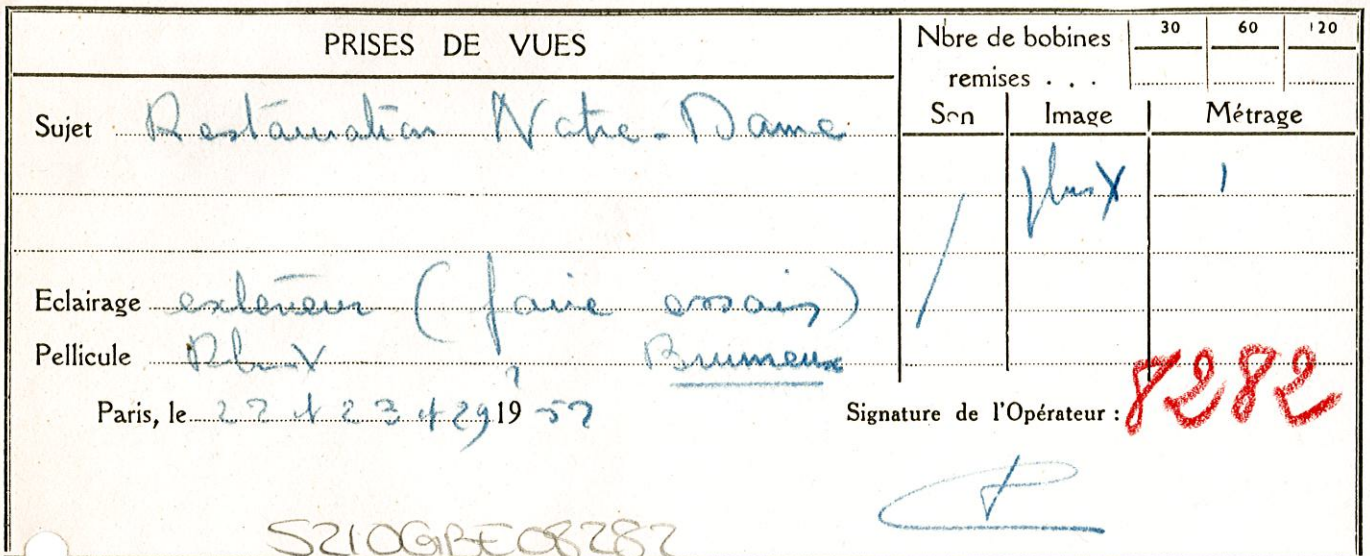 PRISES DE VUES
Nbre de bobines remises . . . 30 60 120
Sujet Restauration Notre-Dame
Son Image Métrage
plus X 1
Eclairage extérieur (faire essais)
Pellicule Plus X Brumeux
Paris, le 22 et 23 et 29 19 52
Signature de l'Opérateur :
8282
5210GBE08282